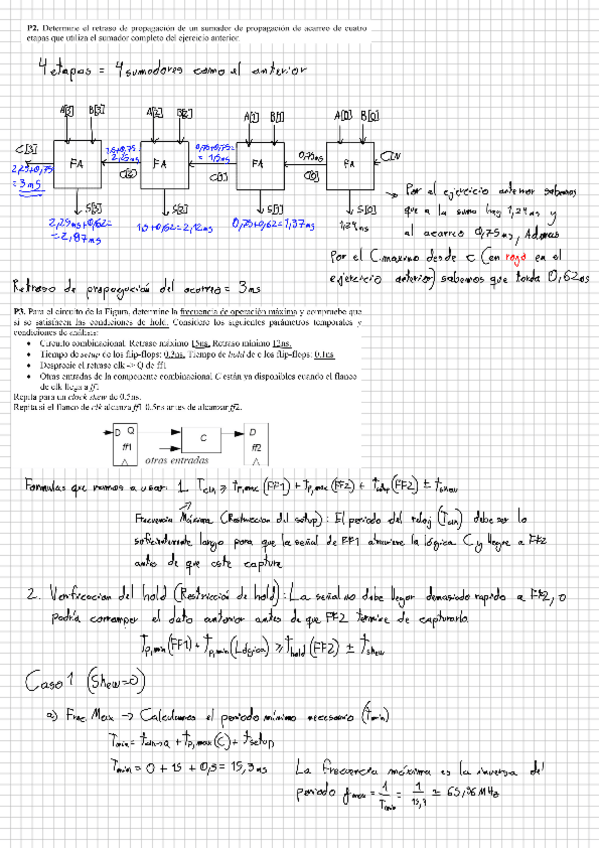 P2. Determine el retraso de propagación de un sumador de propagación de acarreo de cuatro
etapas que utiliza el sumador completo del ejercicio anterior.
4 etapas = 4 sumadores como el anterior
A[3] B[3] A[2] B[2] A[1] B[1] A[0] B[0]
C[3] FA C[2] FA C[1] FA 0,75ns C[0] FA CIN
2,25+0,75 = 3ns
1,5+0,75= 2,25ns
0,75+0,75= = 1,5ns
S[3] S[2] S[1] S[0]
2,25ns+0,62= =2,87ns
1,5+0,62=2,12ns
0,75+0,62=1,37ns
1,24ns
→ Por el ejercicio anterior sabemos
que a la suma hay 1,24ns y
al acarreo 0,75ns, Además
Por el C.maximo desde c (en rojo en el
ejercicio anterior) sabemos que tarda 0,62ns
Retraso de propagación del acarreo = 3ns
P3. Para el circuito de la Figura, determine la frecuencia de operación máxima y compruebe que
si se satisfacen las condiciones de hold. Considere los siguientes parámetros temporales y
condiciones de análisis:
• Circuito combinacional: Retraso máximo 15ns, Retraso mínimo 12ns.
• Tiempo de setup de los flip-flops: 0.3ns, Tiempo de hold de los flip-flops: 0.1ns
• Desprecie el retraso clk -> Q de ff1
• Otras entradas de la componente combinacional C están ya disponibles cuando el flanco
de clk llega a ff.
Repita para un clock skew de 0.5ns.
Repita si el flanco de clk alcanza ff1 0.5ns antes de alcanzar ff2.
D Q ff1
C
D ff2
otras entradas
Formulas que vamos a usar: 1. Tclk ≥ tp,max (FF1) + tp,max (FF2) + tsetup (FF2) ± tskew
Frecuencia Máxima (Restriccion del setup): El periodo del reloj (Tclk) debe ser lo
suficientemente largo para que la señal de FF1 atraviese la lógica C y llegue a FF2
antes de que este capture
2. Verificacion del hold (Restricción de hold): La señal no debe llegar demasiado rapido a FF2, o
podría corromper el dato anterior antes de que FF2 termine de capturarlo
tp,min (FF1) + tp,min (Lógica) ≥ thold (FF2) ± tskew
Caso 1 (Skew=0)
a) Frec. Max → Calculamos el periodo mínimo necesario (Tmin)
Tmin = tclk→Q + tp,max (C) + tsetup
Tmin = 0 + 15 + 0,3 = 15,3 ns
La frecuencia máxima es la inversa del
periodo fmax = 1/Tmin = 1/15,3 ≈ 65,36 MHz